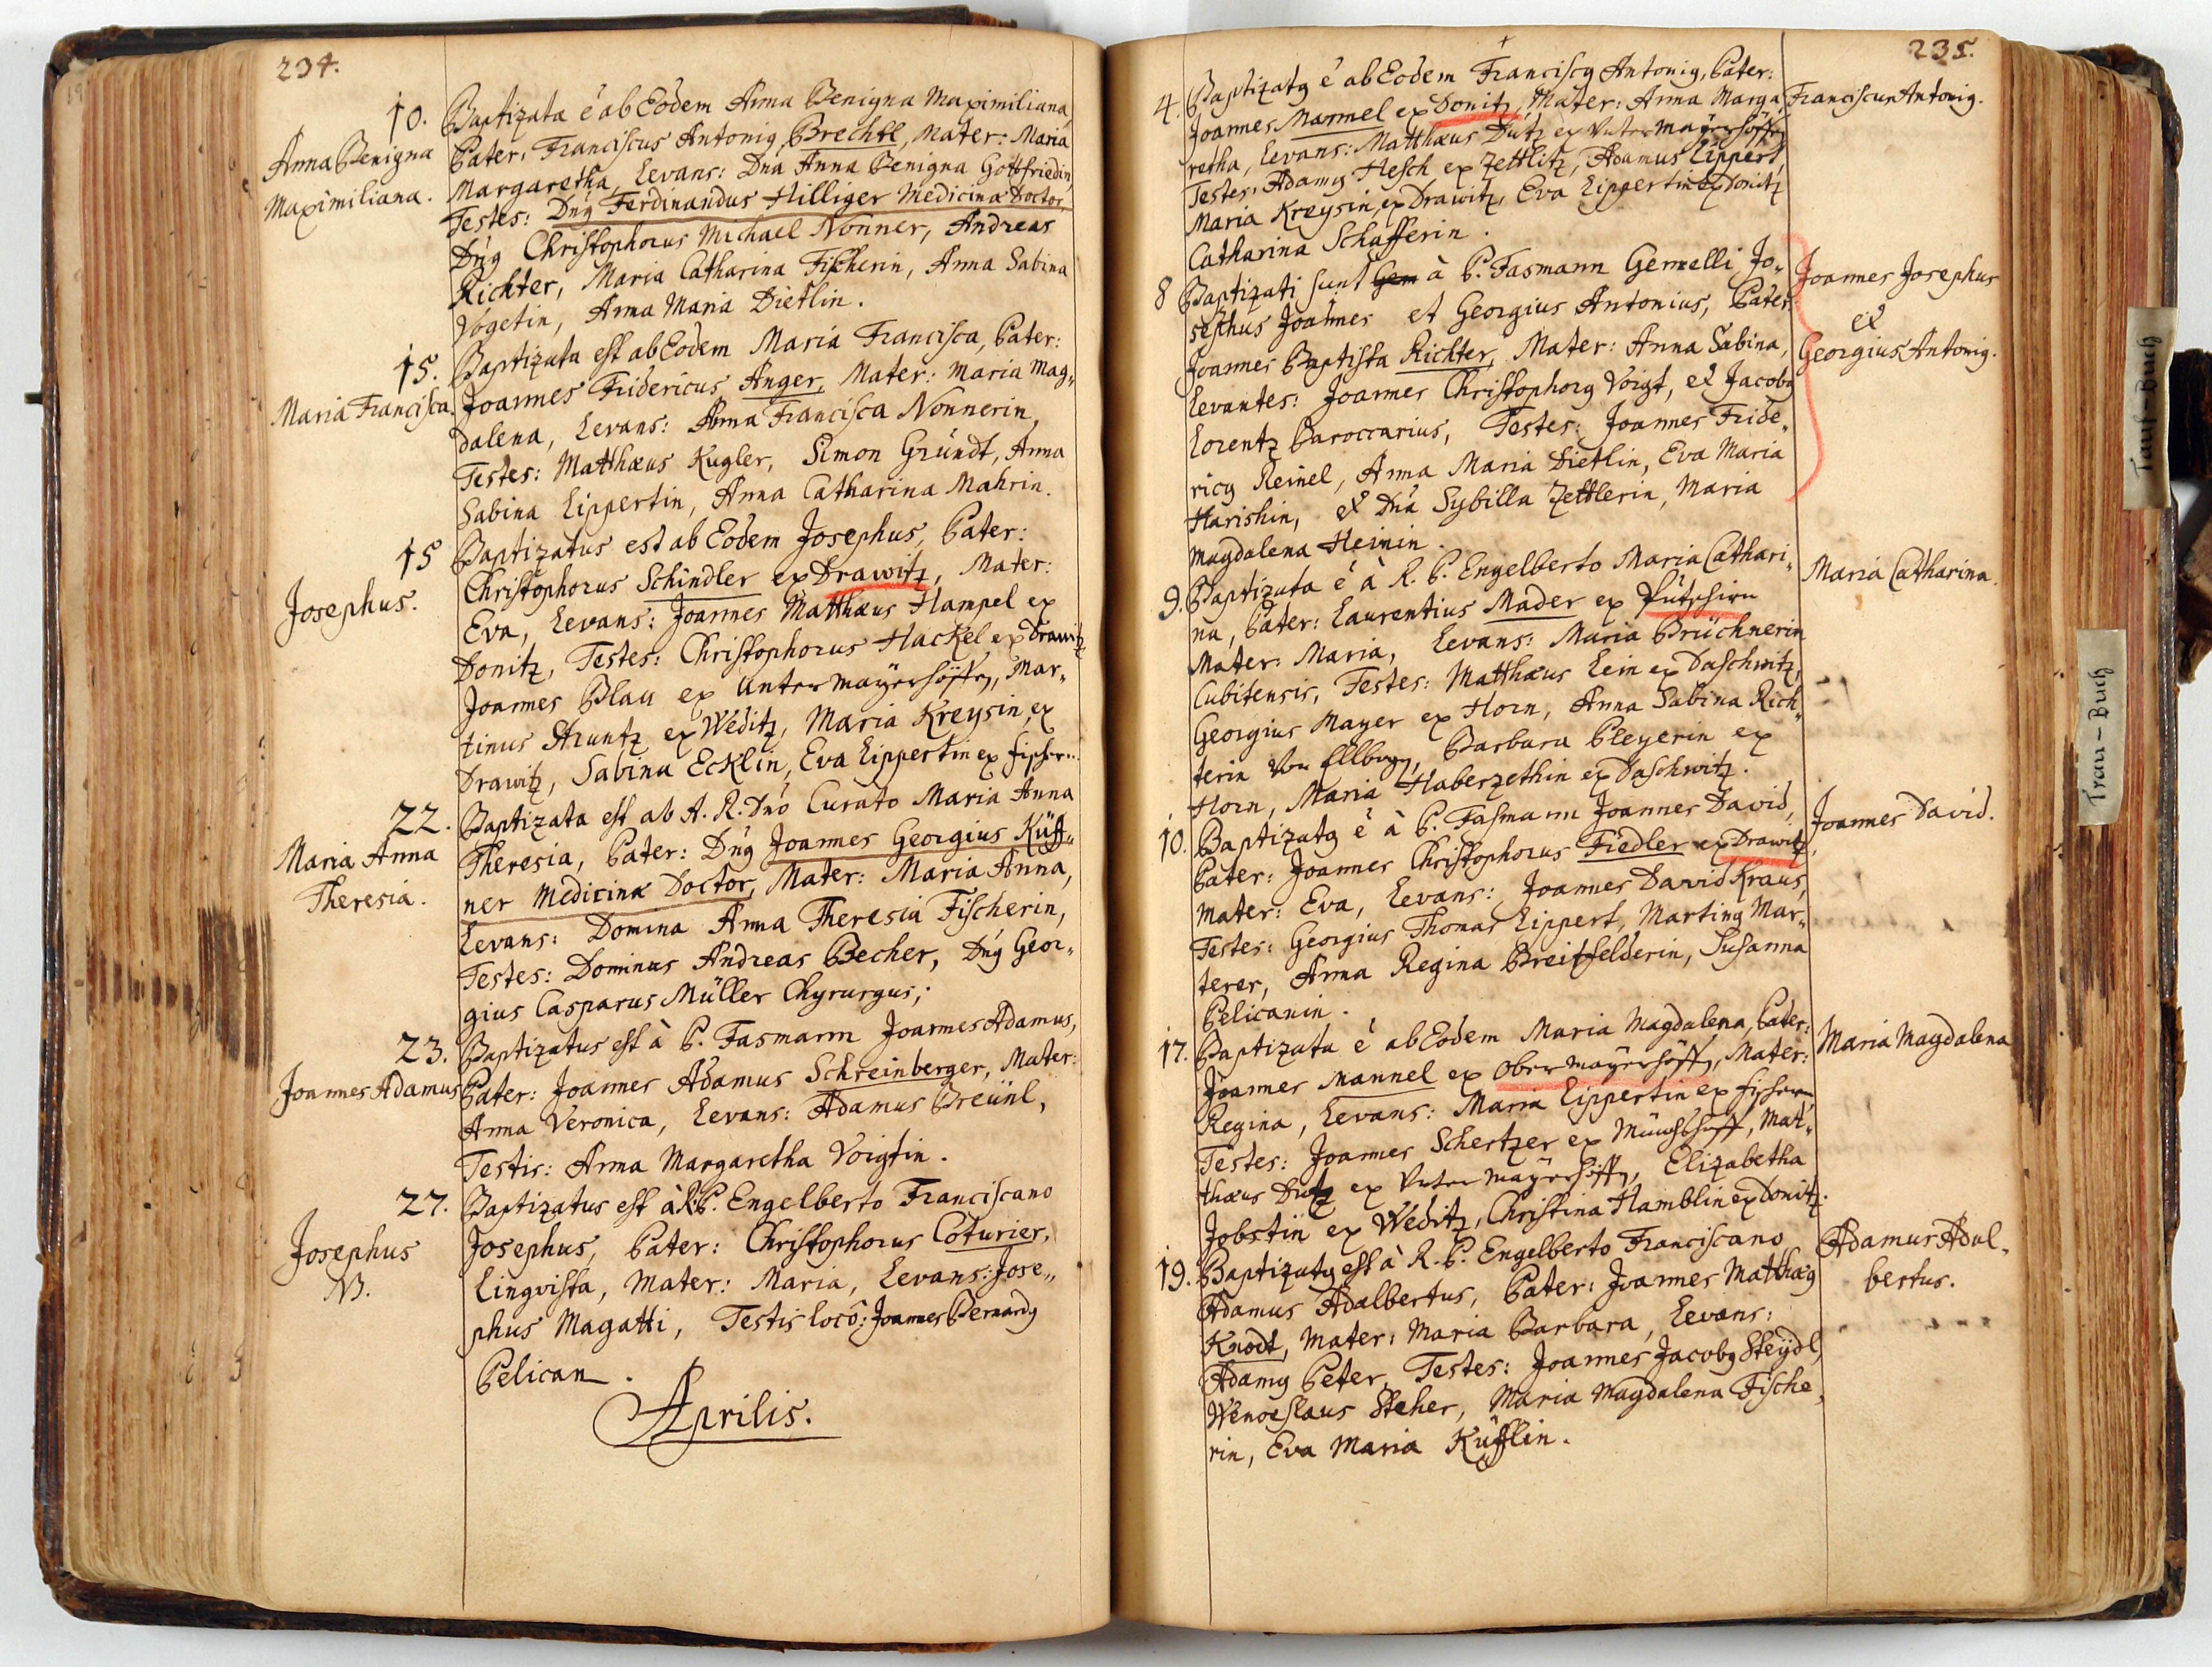 234.
10. Baptizata é ab Eodem Anna Benigna Maximiliana,
Anna Benigna
Maximiliana.
Pater: Franciscus Antonig Brechtl, Mater: Maria
Margaretha, Levans: Dna Anna Benigna Gottfriedin,
Testes: Dng Ferdinandus Hilliger Medicinæ Doctor,
Dng Christophorus Michael Nonner, Andreas
Richter, Maria Catharina Fischerin, Anna Sabina
Vogetin, Anna Maria Dietlin.
15. Baptizata est ab Eodem Maria Francisca, Pater:
Maria Francisca.
Joannes Fridericus Anger, Mater: Maria Mag„
dalena, Levans: Anna Francisca Nonnerin,
Testes: Matthæus Kugler, Simon Gründt, Anna
Sabina Lippertin, Anna Catharina Mahrin.
15 Baptizatus est ab Eodem Josephus, Pater:
Josephus.
Christophorus Schindler ex Drawitz, Mater:
Eva, Levans: Joannes Matthæus Hampel ex
Donitz, Testes: Christophorus Hackel ex Drawitz
Joannes Blau ex Untermaÿershöffen, Mar„
tinus Struntz ex Weditz, Maria Kreysin ex
Drawitz, Sabina Ecklin, Eva Lippertin ex
22. Baptizata est ab A. R. Dno Curato Maria Anna
Maria Anna
Theresia.
Theresia, Pater: Dng Joannes Georgius Küff„
ner Medicinæ Doctor, Mater: Maria Anna,
Levans: Domina Anna Theresia Fischerin,
Testes: Dominus Andreas Becher, Dng Geor„
gius Casparus Müller Chyrurgus;
23. Baptizatus est à P. Fasmann Joannes Adamus,
Joannes Adamus
Pater: Joannes Adamus Schreinberger, Mater:
Anna Veronica, Levans: Adamus Breünl,
Testis: Anna Margaretha Voigtin.
27. Baptizatus est à R. P. Engelberto Franciscano
Josephus
Josephus, Pater: Christophorus Coturier,
Lingvista, Mater: Maria, Levans: Jose„
phus Magatti, Testis locô: Joannes Bernardg
Pelican.
Aprilis.
235.
4. Baptizatg é ab Eodem Franciscg Antonig, Pater:
Franciscus Antonig.
Joannes Mannel ex Donitz, Mater: Anna Marga„
retha, Levans: Matthæus Dutz ex Untermaÿershöffen
Testes: Adamg Hesch ex Zettlitz, Adamus Lippert,
Maria Kreysin, ex Drawitz, Eva Lippertin ex Donitz
Catharina Schafferin.
8 Baptizati sunt Gem à P. Fasmann Gemelli Jo„
Joannes Josephus
et
Georgius Antonig.
sephus Joannes et Georgius Antonius, Pater
Joannes Baptista Richter, Mater: Anna Sabina,
Levantes: Joannes Christophorg Voigt, et Jacobg
Lorentz Paroccarius, Testes: Joannes Fride„
ricg Reinel, Anna Maria Dietlin, Eva Maria
Harishin, et Dna Sybilla Zettlerin, Maria
Magdalena Heinin.
9. Baptizata é à R. P. Engelberto Maria Cathari„
Maria Catharina.
na, Pater: Laurentius Mader ex Putschirn
Mater: Maria, Levans: Maria Brüchnerin
Cubitensis, Testes: Matthæus Lein ex Daschwitz,
Georgius Mayer ex Horn, Anna Sabina Rich„
terin von Ellbogen, Barbara Pleyerin ex
Horn, Maria Haberzethin ex Daschwitz.
10. Baptizatg é à P. Fasmann Joannes David,
Joannes David.
Pater: Joannes Christophorus Fiedler ex Drawitz,
Mater: Eva, Levans: Joannes David Kraus,
Testes: Georgius Thomas Lippert, Marting Mar„
terer, Anna Regina Breitfelderin, Susanna
Pelicanin.
17. Baptizata é ab Eodem Maria Magdalena, Pater:
Maria Magdalena
Joannes Mannel ex Obermaÿershöff, Mater:
Regina, Levans: Maria Lippertin ex
Testes: Joannes Schertzer ex Münchshoff, Mat„
thæus Dutz ex Untermaÿershöffen, Elizabetha
Jobstin ex Weditz, Christina Hamblin ex Donitz.
19. Baptizatg est à R. P. Engelberto Franciscano
Adamus Adal„
bertus.
Adamus Adalbertus, Pater: Joannes Matthæg
Knodt, Mater: Maria Barbara, Levans:
Adamg Peter, Testes: Joannes Jacobg Steÿdl,
Wenceslaus Steher, Maria Magdalena Fische„
rin, Eva Maria Küfflin.
Tauf-Buch
Trau-Buch